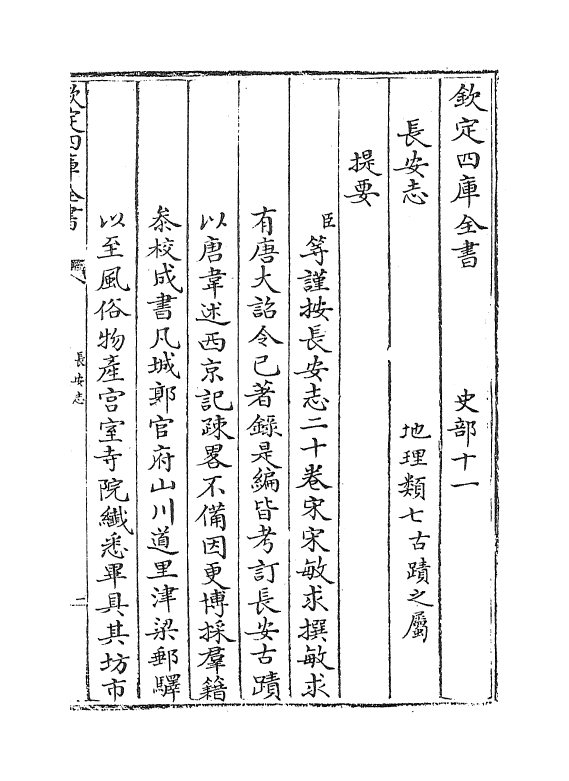 欽定四庫全書 史部十一
長安志 地理類七古蹟之屬
提要
臣等謹按長安志二十卷宋宋敏求撰敏求
有唐大詔令已著錄是編皆考訂長安古蹟
以唐韋述西京記疎畧不備因更博採羣籍
叅校成書凡城郭官府山川道里津梁郵驛
以至風俗物產宫室寺院纎悉畢具其坊市
欽定四庫全書
長安志